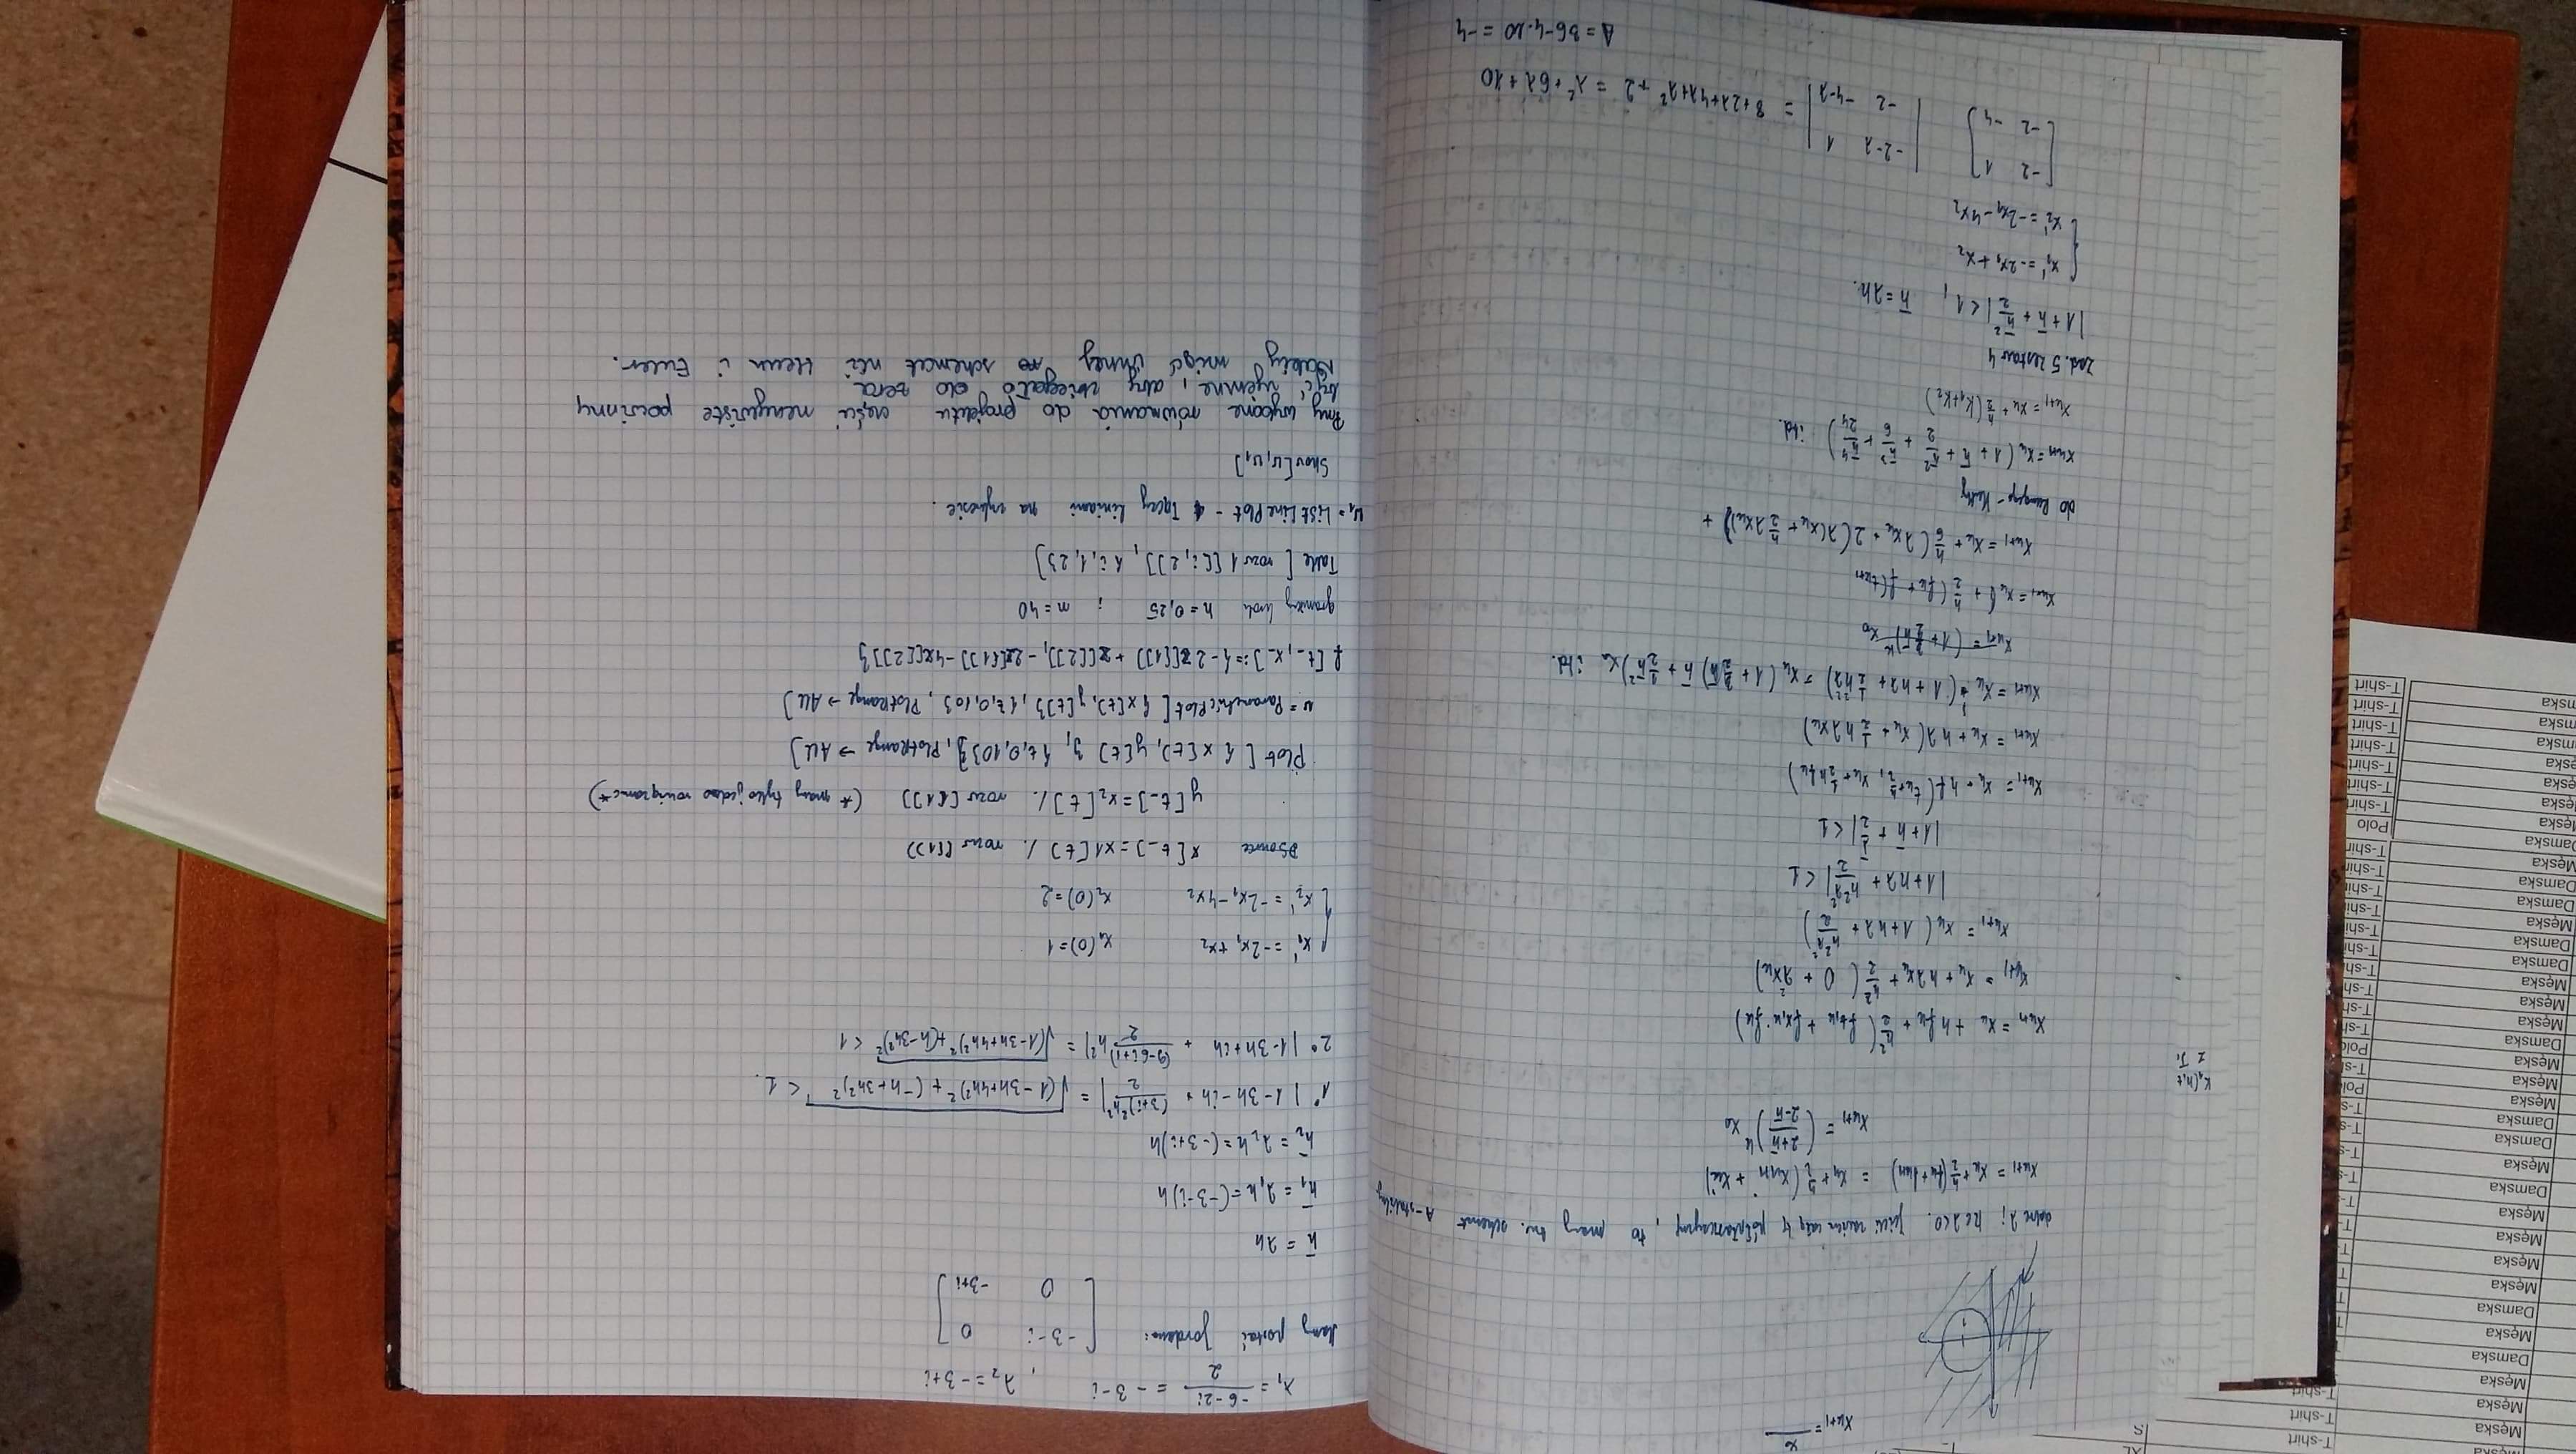 Męska T-shirt XL
Męska T-shirt S
Męska T-shirt
Męska
Damska
Męska
Damska
Męska
Męska
Męska
Męska
Damska
Męska
Damska
Damska
Męska
Męska
Męska
Damska
Męska
Męska
Męska
Damska
Damska
Męska
Damska
Damska
Męska
Polo
T-shirt
T-shirt
T-shirt
T-shirt
T-shirt
T-shirt
T-shirt
x_{k+1} = x_0
dobre λ; Re λ<0. Jeśli zawiera całą tę półpłaszczyznę, to mamy tzw. schemat A-stabilny
x_{k+1} = x_k + h/2 (f_k + f_{k+1}) = x_k + h/2 (x_{k+1}' + x_k')
x_{k+1} = ((2+h̄)/(2-h̄))^k x_0
x_{k+1} = x_k + h f_k + h²/2 (f_{t,k} + f_{x,k} · f_k)
x_{k+1} = x_k + hλx_k + h²/2 (0 + λ²x_k)
x_{k+1} = x_k (1 + hλ + h²λ²/2)
|1 + hλ + h²λ²/2| < 1
|1 + h̄ + h̄/2| < 1
x_{k+1} = x_k + h f(t_k + h/2, x_k + 1/2 h f_k)
x_{k+1} = x_k + hλ(x_k + 1/2 hλx_k)
x_{k+1} = x_k (1 + hλ + 1/2 h²λ²) = x_k (1 + h̄ + 1/2 h̄²) x_k itd.
x_{k+1} = (1 + 3/2 h̄)^k x_0
x_{k+1} = x_k + h/2 (f_k + f(t_{k+1}
x_{k+1} = x_k + h/6 (λx_k + 2(λ(x_k + h/2 λx_k)) +
do Rungego-Kutty
x_{k+1} = x_k (1 + h̄ + h̄²/2 + h̄³/6 + h̄⁴/24) itd.
x_{k+1} = x_k + h/2 (K_1 + K_2)
Zad. 5 Zestaw 4
|1 + h̄ + h̄²/2| < 1, h̄ = λh.
x_1' = -2x_1 + x_2
x_2' = -2x_1 - 4x_2
[-2 1; -2 -4] |-2-λ 1; -2 -4-λ| = 8+2λ+4λ+λ²+2 = λ²+6λ+10
Δ = 36-4·10 = -4
λ_1 = (-6-2i)/2 = -3-i , λ_2 = -3+i
Mamy postać Jordana: [-3-i 0; 0 -3+i]
h̄ = λh
h̄_1 = λ_1h = (-3-i)h
h̄_2 = λ_2h = (-3+i)h
1° |1-3h-ih + (3+i)²h²/2| = √((1-3h+4h²)² + (-h+3h²)²) < 1.
2° |1-3h+ih + (9-6i+1)/2 h²| = √((1-3h+4h²)² + (h-3h²)²) < 1
x_1' = -2x_1 + x_2 x_1(0)=1
x_2' = -2x_1 - 4x_2 x_2(0)=2
x[t_]=x1[t] /. rozw[[1]]
y[t_]=x_2[t] /. rozw[[1]] (* mamy tylko jedno rozwiązanie *)
Plot[{x[t], y[t]}, {t,0,10}], PlotRange → All]
v = ParametricPlot[{x[t], y[t]}, {t,0,10}, PlotRange → All]
f[t_, x_]:={-2x[[1]] + x[[2]], -2x[[1]] - 4x[[2]]}
graniczny krok h=0,25 ; n=40
Table[rozw1[[i,2]], {i,1,2}]
v_1 = ListLinePlot - łączy liniami na wykresie.
Show[v,v_1]
Przy wyborze równania do projektu części rzeczywiste powinny
być ujemne, aby zbiegało do zera
Należy wziąć inny schemat niż Heun i Euler.